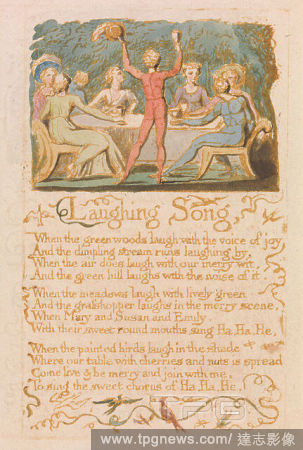 Laughing Song,
When the green woods laugh with the voice of joy
And the dimpling stream runs laughing by,
When the air does laugh with our merry wit,
And the green hill laughs with the noise of it.
When the meadows laugh with lively green
And the grasshopper laughs in the merry scene,
When Mary and Susan and Emily,
With their sweet round mouths sing Ha, Ha, He.
When the painted birds laugh in the shade
Where our table with cherries and nuts is spread
Come live & be merry and join with me,
To sing the sweet chorus of Ha, Ha, He.
TPG
www.tpgnews.com / 達志影像